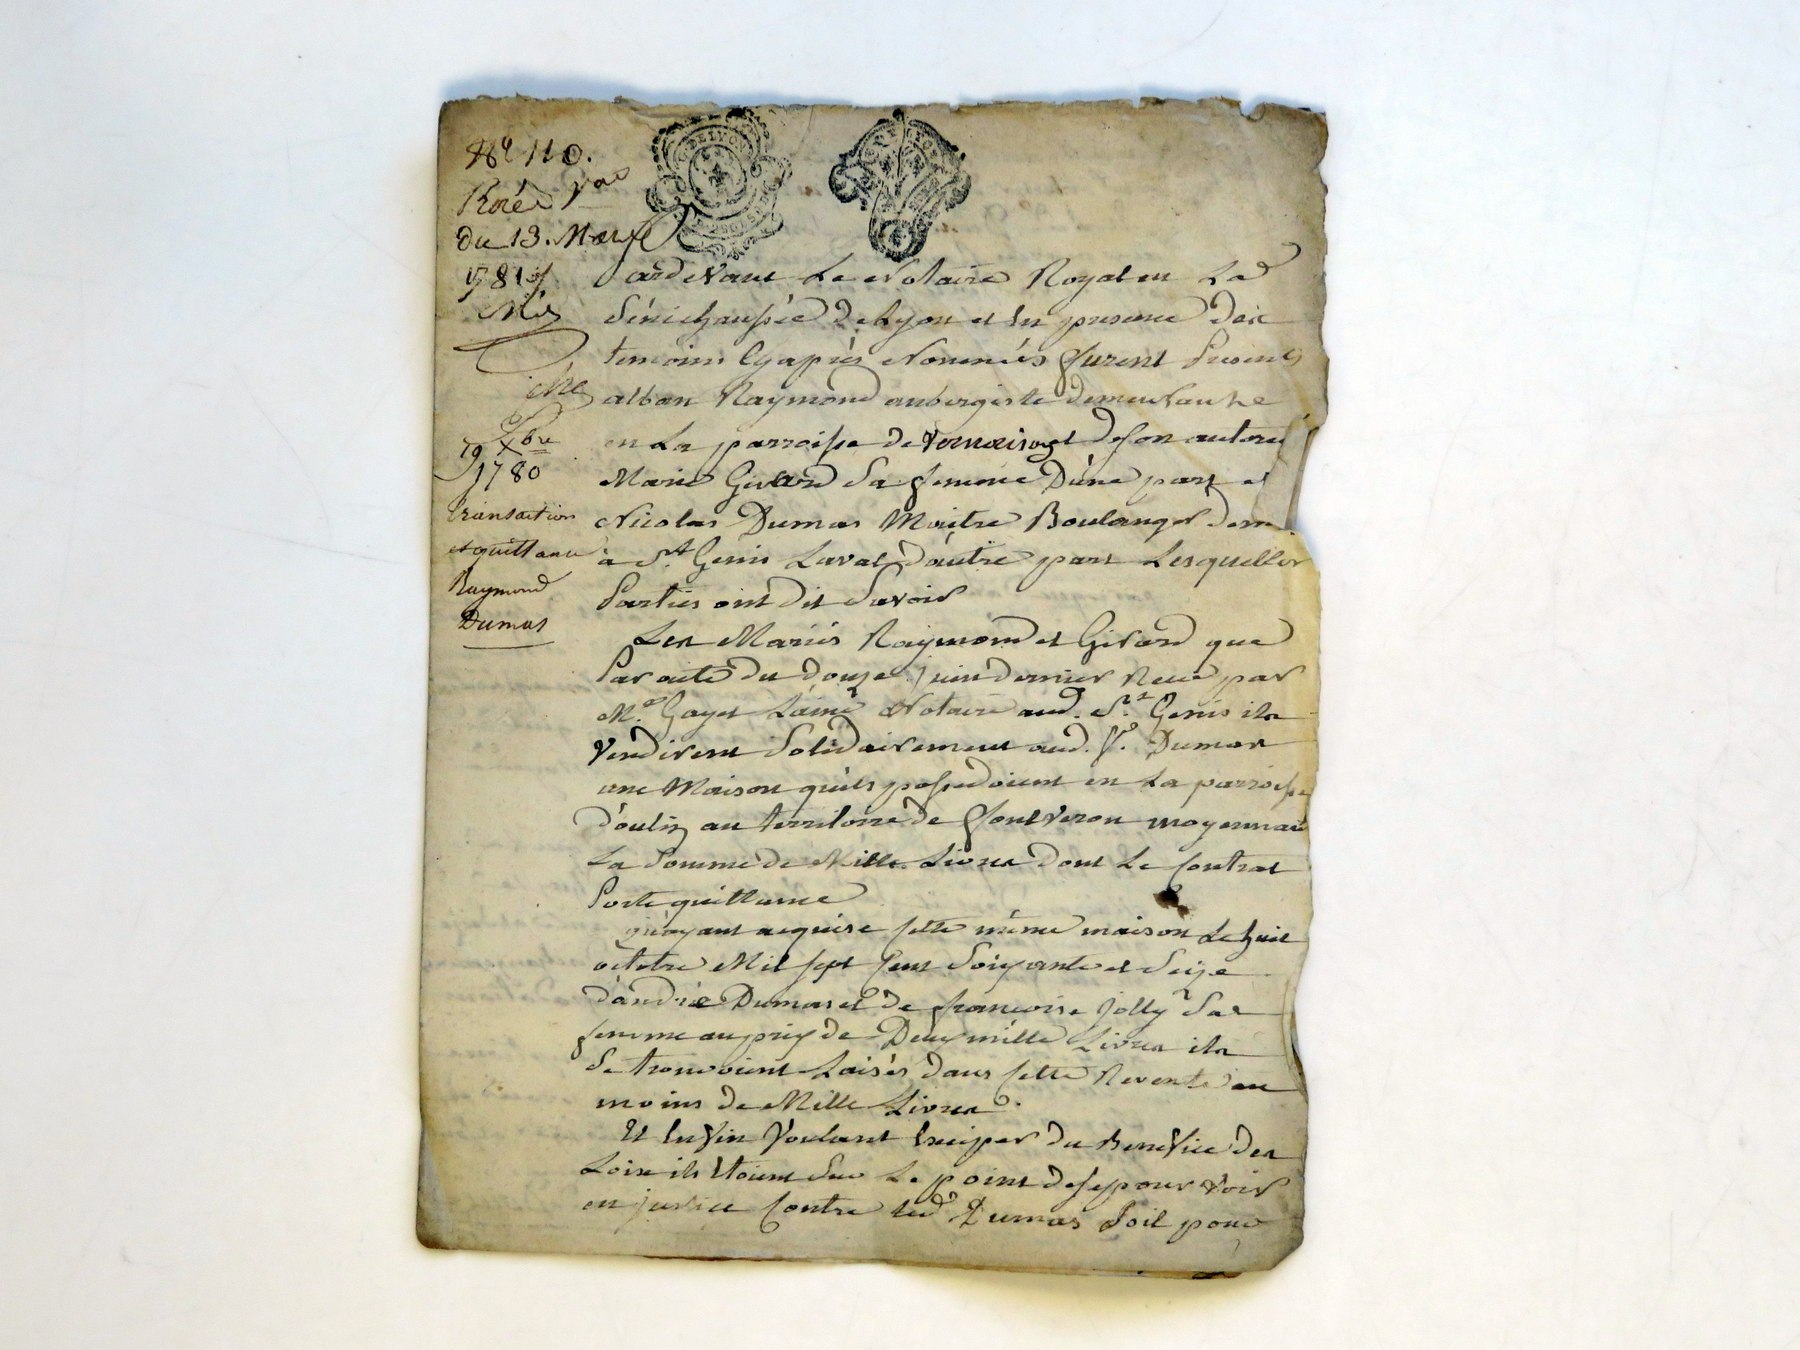 N° 110.
du 13. Mars
1781
19 Xbre
1780
transaction
et quittance
Raymond
Dumas
Pardevant Le Notaire Royal en La
Sénéchaussée de Lyon et En presence des
temoins Cyaprès Nommés furent Presents
alban Raymond aubergiste demeurant
en La parroisse de vernaison et de son autorité
Marie Girard Sa femme D'une part et
Nicolas Dumas Maitre Boulanger dem.
a St. Genis Laval D'autre part Lesquelles
Parties ont dit Savoir
Les Mariés Raymond et Girard que
Par acte du douze juin dernier Recu par
Me. Gayet L'ainé Notaire aud. St. Genis ils
Vendirent Solidairement aud. Sr. Dumas
une Maison qu'ils possedoient en La parroisse
d'oulin au territoire de fontveron moyennant
La Somme de Mille Livres dont Le Contrat
Porte quittance
qu'ayant acquise Cette même maison Le huit
octobre Mil sept Cent Soixante et Seize
d'andré Dumas et de francoise Jolly Sa
femme au prix de Deux mille Livres ils
Se trouvoient Laisés dans Cette Revente au
moins de Mille Livres.
Et Enfin Voulant Exciper du Benefice des
Loix ils Etoient Sur Le point de se pourvoir
en justice Contre led. Dumas Soit pour